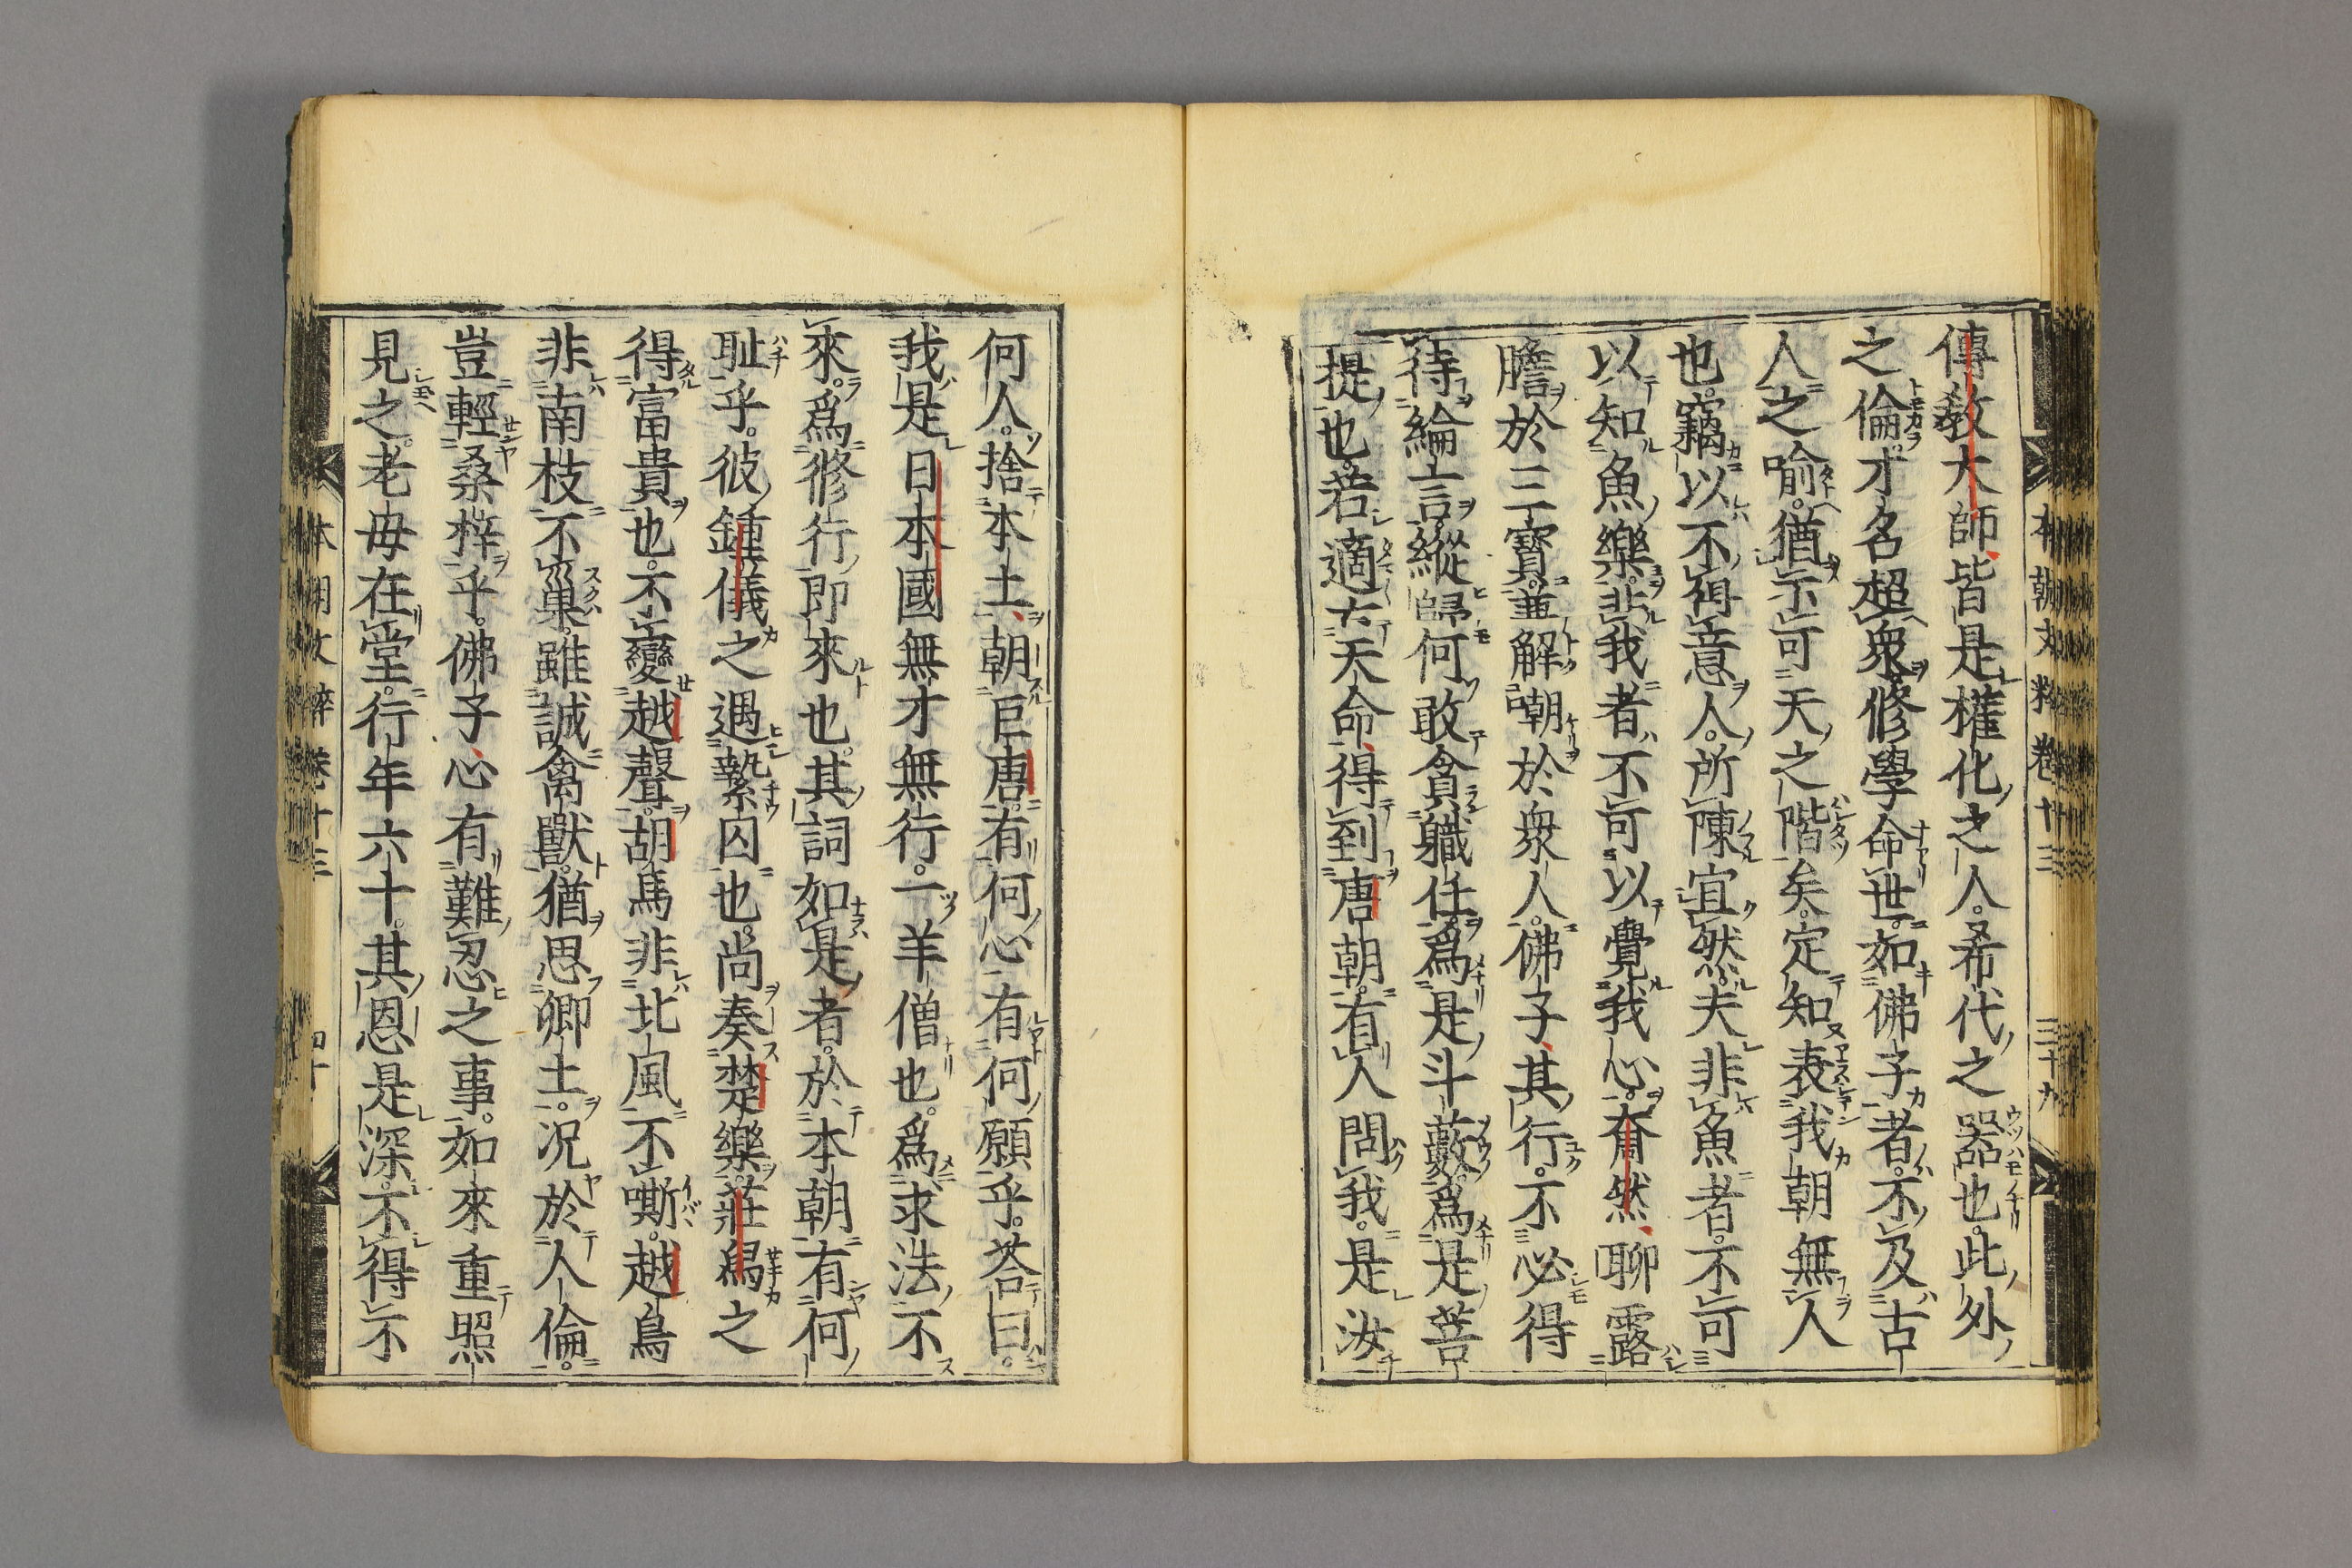 本朝文粋卷十三　三十九
傳教大師皆是權化之人。希代之器也。此外
之倫。才名超衆。修學命世。如佛子者。不及古
人之喩。猶不可天之階矣。定知表我朝無人
也。竊以不得意人。所陳宜然。夫非魚者。不可
以知魚樂。非我者。不可以覺我心。奝然聊露
膽於三寶。兼解嘲於衆人。佛子其行。不必得
待綸言。縱歸何敢貪職任。爲是斗藪。爲是菩
提也。若適大天命。得到唐朝。有人問我。是汝
何人。捨本土朝巨唐。有何心有何願乎。荅曰。
我是日本國無才無行。一羊僧也。爲求法不
來。爲修行即來也。其詞如是者。於本朝有何
耻乎。彼鍾儀之遇縶囚也。尚奏楚樂。莊舃之
得富貴也。不變越聲。胡馬非北風不嘶。越鳥
非南枝不巢。雖誠禽獸。猶思郷土。況於人倫。
豈輕桑梓乎。佛子心有難忍之事。如來重照
見之。老母在堂。行年六十。其恩是深。不得不
本朝文粋卷十三　四十